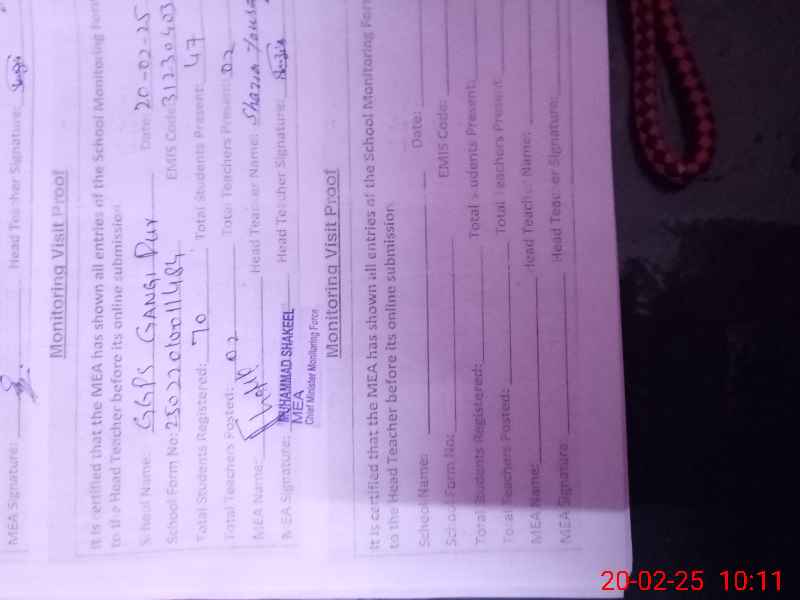 MEA Signature: Head Teacher Signature:
Monitoring Visit Proof
It is certified that the MEA has shown all entries of the School Monitoring Form
to the Head Teacher before its online submission
School Name: GGPS GANGI PUR Date: 20-02-25
School Form No: EMIS Code: 31230403
Total Students Registered: 70 Total Students Present: 47
Total Teachers Posted: 02 Total Teachers Present: 02
MEA Name: Head Teacher Name: Shazia
MEA Signature: Head Teacher Signature:
MUHAMMAD SHAKEEL
MEA
Chief Minister Monitoring Force
Monitoring Visit Proof
It is certified that the MEA has shown all entries of the School Monitoring Form
to the Head Teacher before its online submission
School Name: Date:
School Form No: EMIS Code:
Total Students Registered: Total Students Present:
Total Teachers Posted: Total Teachers Present:
MEA Name: Head Teacher Name:
MEA Signature: Head Teacher Signature:
20-02-25 10:11